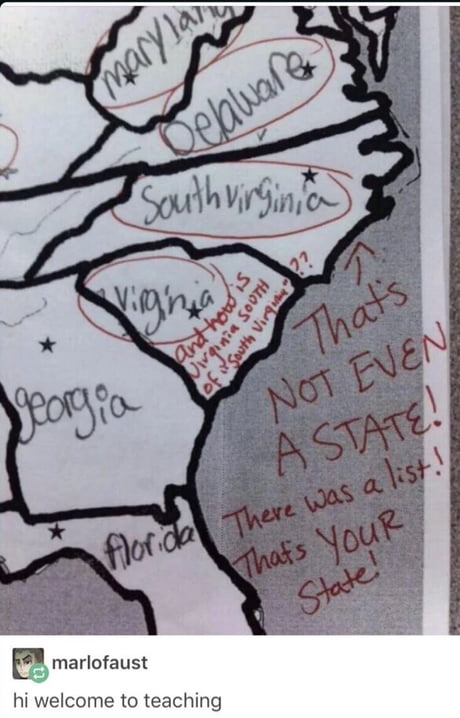 maryland
Delaware
South Virginia
Virginia
and how is
Virginia SOUTH
of "South Virginia"??
georgia
florida
That's
NOT EVEN
A STATE!
There was a list!
That's YOUR
State!
marlofaust
hi welcome to teaching